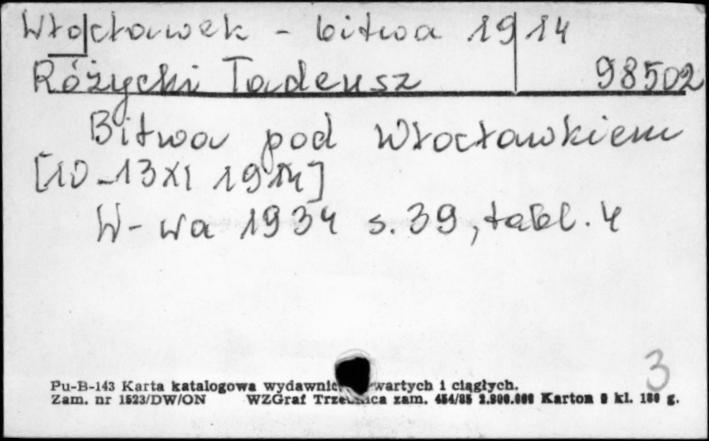 Włocławek - bitwa 1914
Różycki Tadeusz 98502
Bitwa pod Włocławkiem
[10-13 XI 1914]
W-wa 1934 s. 39, tabl. 4
3
Pu-B-143 Karta katalogowa wydawnictw zwartych i ciągłych.
Zam. nr 1523/DW/ON WZGraf Trzebnica zam. 454/85 2.900.000 Karton 0 kl. 180 g.